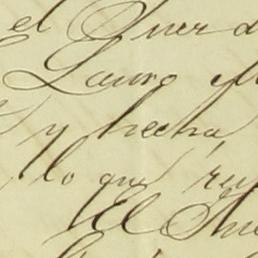 el Juez d
Lauro M
y hecha,
lo que ru
El Jue